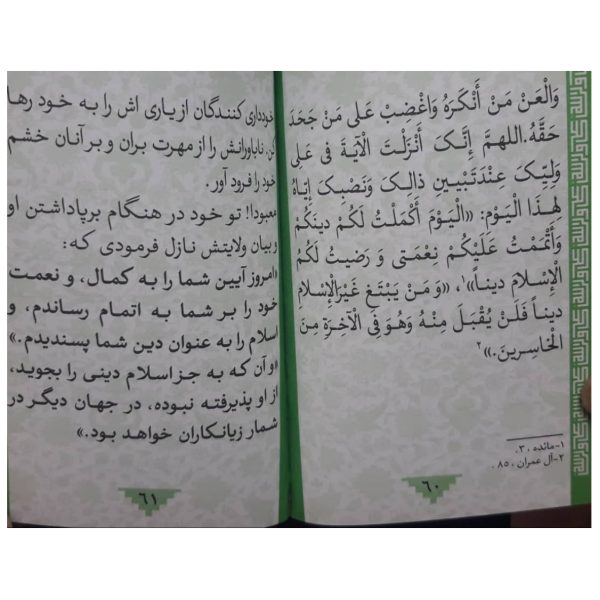 وَالْعَنْ مَنْ أَنْكَرَهُ وَاغْضِبْ عَلى مَنْ جَحَدَ
حَقَّهُ.اللهمَّ إِنَّکَ أَنْزَلْتَ الْآیَةَ فی عَلی
وَلِیِّکَ عِنْدَتَبْیینِ ذالِکَ وَنَصْبِکَ إِیّاهُ
لِهذَا الْیَوْمِ: «اَلْیَوْمَ أَکْمَلْتُ لَکُمْ دینَکُمْ
وَأَتْمَمْتُ عَلَیْکُمْ نِعْمَتی وَ رَضیتُ لَکُمُ
الْإِسْلامَ دیناً»۱، «وَ مَنْ یَبْتَغِ غَیْرَالْإِسْلامِ
دیناً فَلَنْ یُقْبَلَ مِنْهُ وَهُوَ فِی الْآخِرَةِ مِنَ
الْخاسِرینَ.»۲
۱-مائده ، ۳.
۲-آل عمران ، ۸۵.
۶۰
خودداری کنندگان از یاری اش را به خود رها
کن. ناباورانش را از مهرت بران و بر آنان خشم
خود را فرود آور.
معبودا! تو خود در هنگام برپاداشتن او
و بیان ولایتش نازل فرمودی که:
«امروز آیین شما را به کمال، و نعمت
خود را بر شما به اتمام رساندم، و
اسلام را به عنوان دین شما پسندیدم.»
«و آن که به جز اسلام دینی را بجوید،
از او پذیرفته نبوده، در جهان دیگر در
شمار زیانکاران خواهد بود.»
۶۱